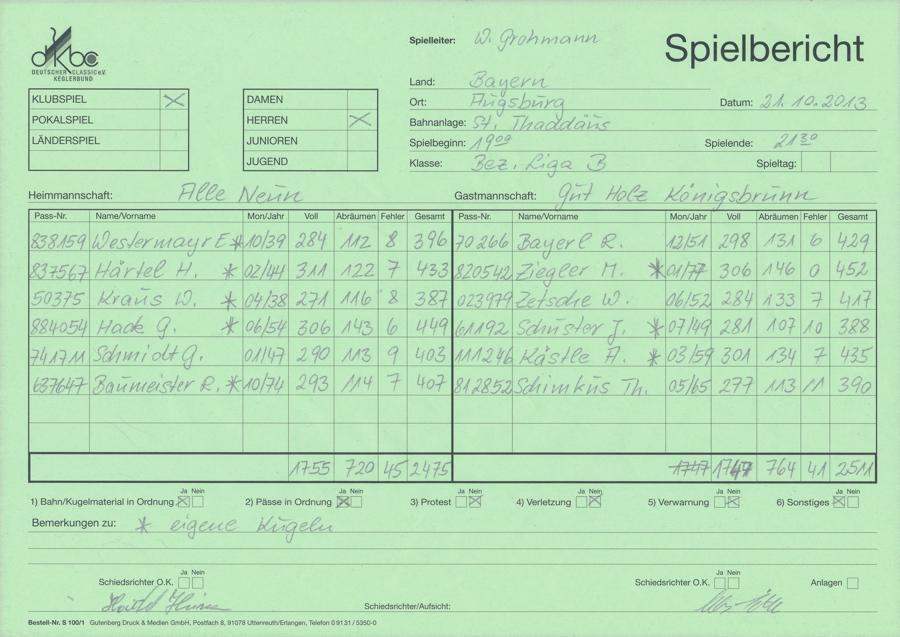 Spielleiter: W. Grohmann
Spielbericht
dkbc
DEUTSCHER CLASSIC e.V.
KEGLERBUND
Land: Bayern
Ort: Augsburg Datum: 21.10.2013
Bahnanlage: St. Thaddäus
Spielbeginn: 19°° Spielende: 21³⁰
Klasse: Bez. Liga B Spieltag:
KLUBSPIEL X
POKALSPIEL
LÄNDERSPIEL
DAMEN
HERREN X
JUNIOREN
JUGEND
Heimmannschaft: Alle Neun
Gastmannschaft: Gut Holz Königsbrunn
Pass-Nr. Name/Vorname Mon/Jahr Voll Abräumen Fehler Gesamt Pass-Nr. Name/Vorname Mon/Jahr Voll Abräumen Fehler Gesamt
838159 Westermayr E * 10/39 284 112 8 396 70266 Bayerl R. 12/51 298 131 6 429
837567 Härtel H. * 02/44 311 122 7 433 820542 Ziegler M. * 01/77 306 146 0 452
50375 Kraus W. * 04/38 271 116 8 387 023979 Zetsche W. 06/52 284 133 7 417
884054 Hack G. * 06/54 306 143 6 449 61192 Schuster J. * 07/49 281 107 10 388
741711 Schmidt G. 01/47 290 113 9 403 111246 Kästle A. * 03/59 301 134 7 435
637647 Baumeister R. * 10/74 293 114 7 407 812852 Schimkus Th. 05/65 277 113 11 390
1755 720 45 2475 1747 1747 764 41 2511
Ja Nein Ja Nein Ja Nein Ja Nein Ja Nein Ja Nein
1) Bahn/Kugelmaterial in Ordnung 2) Pässe in Ordnung 3) Protest 4) Verletzung 5) Verwarnung 6) Sonstiges
Bemerkungen zu: * eigene Kugeln
Ja Nein Ja Nein
Schiedsrichter O.K. Schiedsrichter O.K. Anlagen
Schiedsrichter/Aufsicht:
Bestell-Nr. S 100/1 Gutenberg Druck & Medien GmbH, Postfach 8, 91078 Uttenreuth/Erlangen, Telefon 0 91 31 / 5350-0